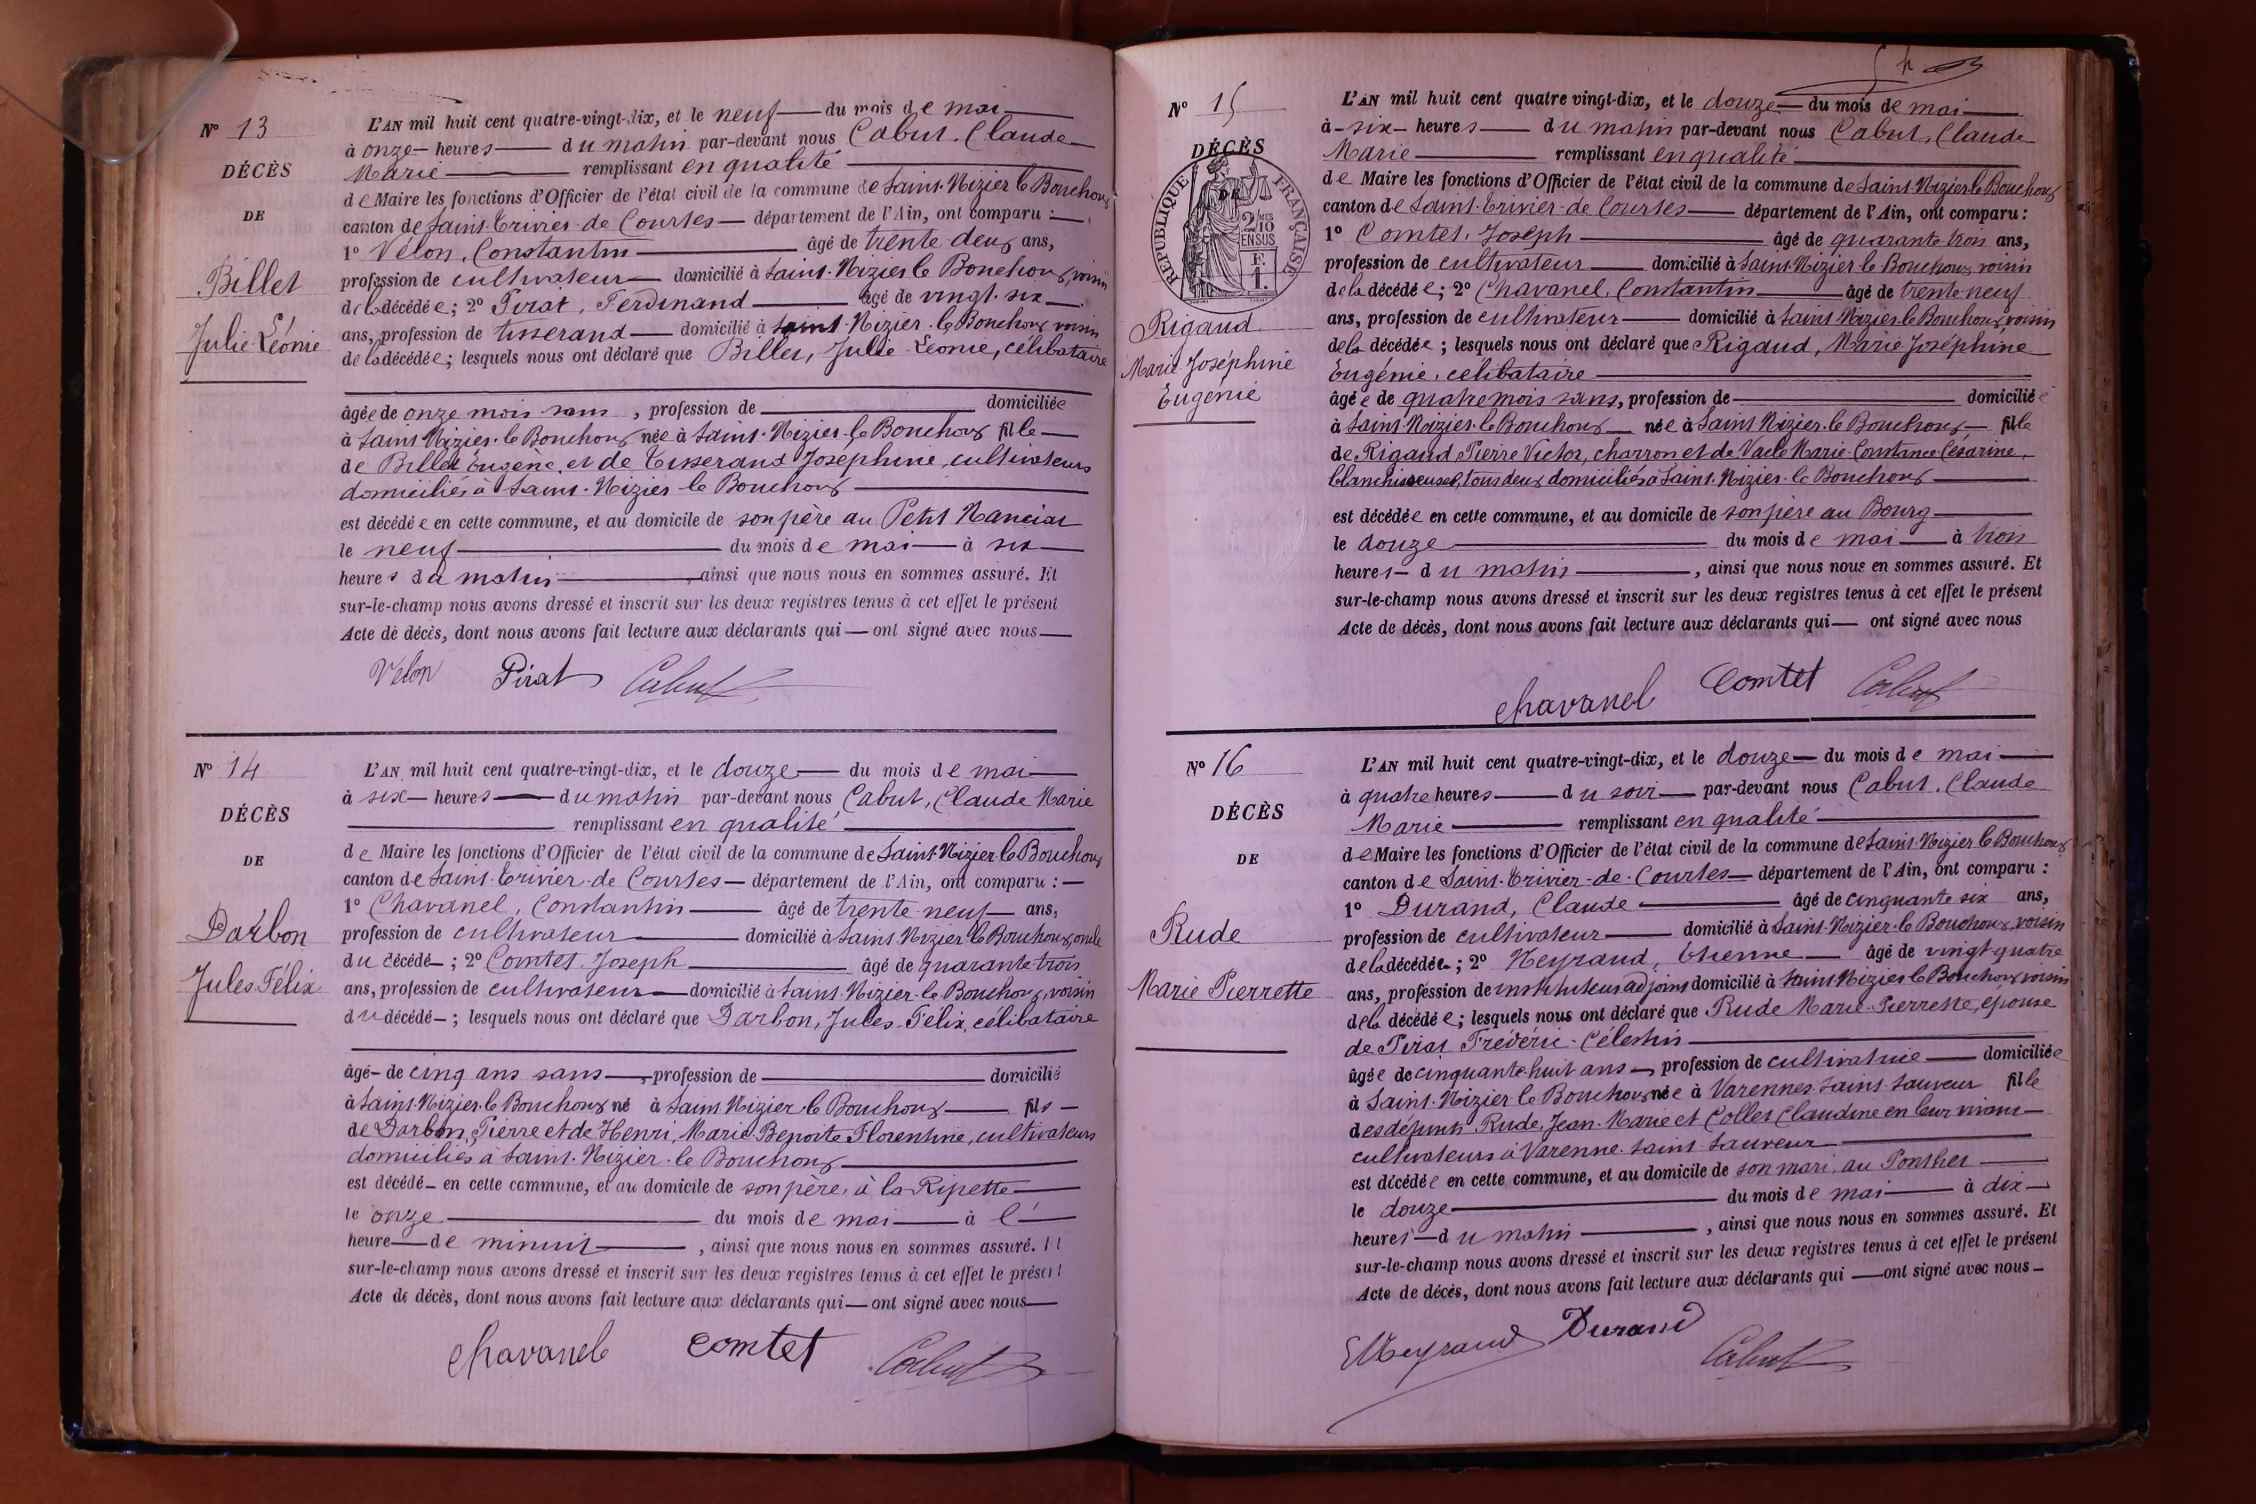 N° 13
DÉCÈS
DE
Billet
Julie Léonie
L'AN mil huit cent quatre-vingt-dix, et le neuf du mois de mai
à onze heures du matin par-devant nous Cabut, Claude
Marie remplissant en qualité
de Maire les fonctions d'Officier de l'état civil de la commune de Saint-Nizier le Bouchoux
canton de Saint-Trivier-de Courtes département de l'Ain, ont comparu :
1° Velon, Constantin âgé de trente-deux ans,
profession de cultivateur domicilié à Saint-Nizier le Bouchoux, voisin
de la décédée ; 2° Pirat, Ferdinand âgé de vingt-six
ans, profession de tisserand domicilié à Saint-Nizier-le Bouchoux voisin
de la décédée ; lesquels nous ont déclaré que Billet, Julie Léonie, célibataire
âgée de onze mois sans , profession de domiciliée
à Saint Nizier-le Bouchoux née à Saint-Nizier-le Bouchoux fille
de Billet Eugène, et de Tisserand Joséphine, cultivateurs
domiciliés à Saint-Nizier-le Bouchoux
est décédée en cette commune, et au domicile de son père au Petit Manciat
le neuf du mois de mai à six
heures du matin , ainsi que nous nous en sommes assuré. Et
sur-le-champ nous avons dressé et inscrit sur les deux registres tenus à cet effet le présent
Acte de décès, dont nous avons fait lecture aux déclarants qui ont signé avec nous
Velon Pirat Cabut
N° 14
DÉCÈS
DE
Darbon
Jules Félix
L'AN mil huit cent quatre-vingt-dix, et le douze du mois de mai
à six heures du matin par-devant nous Cabut, Claude Marie
remplissant en qualité
de Maire les fonctions d'Officier de l'état civil de la commune de Saint-Nizier-le Bouchoux
canton de Saint-Trivier-de Courtes département de l'Ain, ont comparu :
1° Chavanel, Constantin âgé de trente-neuf ans,
profession de cultivateur domicilié à Saint-Nizier le Bouchoux, oncle
du décédé ; 2° Comtet, Joseph âgé de quarante-trois
ans, profession de cultivateur domicilié à Saint-Nizier-le Bouchoux, voisin
du décédé ; lesquels nous ont déclaré que Darbon, Jules-Félix, célibataire
âgé de cinq ans sans profession de domicilié
à Saint-Nizier-le Bouchoux né à Saint Nizier-le Bouchoux fils
de Darbon, Pierre et de Henri, Marie Benoite Florentine, cultivateurs
domiciliés à Saint-Nizier-le Bouchoux
est décédé en cette commune, et au domicile de son père, à la Ripette
le onze du mois de mai à l'
heure de minuit , ainsi que nous nous en sommes assuré. Et
sur-le-champ nous avons dressé et inscrit sur les deux registres tenus à cet effet le présent
Acte de décès, dont nous avons fait lecture aux déclarants qui ont signé avec nous
Chavanel Comtet Cabut
N° 15
DÉCÈS
DE
RÉPUBLIQUE FRANÇAISE
2/10
EN SUS
F.
1.
Rigaud
Marie Joséphine
Eugénie
L'AN mil huit cent quatre vingt-dix, et le douze du mois de mai
à six heures du matin par-devant nous Cabut, Claude
Marie remplissant en qualité
de Maire les fonctions d'Officier de l'état civil de la commune de Saint-Nizier le Bouchoux
canton de Saint-Trivier-de Courtes département de l'Ain, ont comparu :
1° Comtet, Joseph âgé de quarante trois ans,
profession de cultivateur domicilié à Saint-Nizier le Bouchoux, voisin
de la décédée ; 2° Chavanel, Constantin âgé de trente-neuf
ans, profession de cultivateur domicilié à Saint-Nizier-le Bouchoux, voisin
de la décédée ; lesquels nous ont déclaré que Rigaud, Marie Joséphine
Eugénie, célibataire
âgée de quatre mois sans, profession de domiciliée
à Saint-Nizier-le Bouchoux née à Saint Nizier-le Bouchoux fille
de Rigaud Pierre Victor, charron et de Vacle Marie Constance Césarine,
blanchisseuse, tous deux domiciliés à Saint-Nizier-le Bouchoux
est décédée en cette commune, et au domicile de son père au Bourg
le douze du mois de mai à trois
heures du matin , ainsi que nous nous en sommes assuré. Et
sur-le-champ nous avons dressé et inscrit sur les deux registres tenus à cet effet le présent
Acte de décès, dont nous avons fait lecture aux déclarants qui ont signé avec nous
Chavanel Comtet Cabut
N° 16
DÉCÈS
DE
Rude
Marie Pierrette
L'AN mil huit cent quatre-vingt-dix, et le douze du mois de mai
à quatre heures du soir par-devant nous Cabut, Claude
Marie remplissant en qualité
de Maire les fonctions d'Officier de l'état civil de la commune de Saint-Nizier le Bouchoux
canton de Saint-Trivier-de-Courtes département de l'Ain, ont comparu :
1° Durand, Claude âgé de cinquante six ans,
profession de cultivateur domicilié à Saint-Nizier-le Bouchoux, voisin
de la décédée ; 2° Neyraud, Etienne âgé de vingt-quatre
ans, profession de instituteur adjoint domicilié à Saint Nizier le Bouchoux voisin
de la décédée ; lesquels nous ont déclaré que Rude Marie-Pierrette, épouse
de Pirat Frédéric-Célestin
âgée de cinquante-huit ans , profession de cultivatrice domiciliée
à Saint-Nizier-le Bouchoux née à Varennes-Saint-Sauveur fille
des défunts Rude, Jean-Marie et Collet Claudine en leur vivant
cultivateurs à Varenne-Saint Sauveur
est décédée en cette commune, et au domicile de son mari, au Ponthet
le douze du mois de mai à dix
heures du matin , ainsi que nous nous en sommes assuré. Et
sur-le-champ nous avons dressé et inscrit sur les deux registres tenus à cet effet le présent
Acte de décès, dont nous avons fait lecture aux déclarants qui ont signé avec nous
ENeyraud Durand Cabut